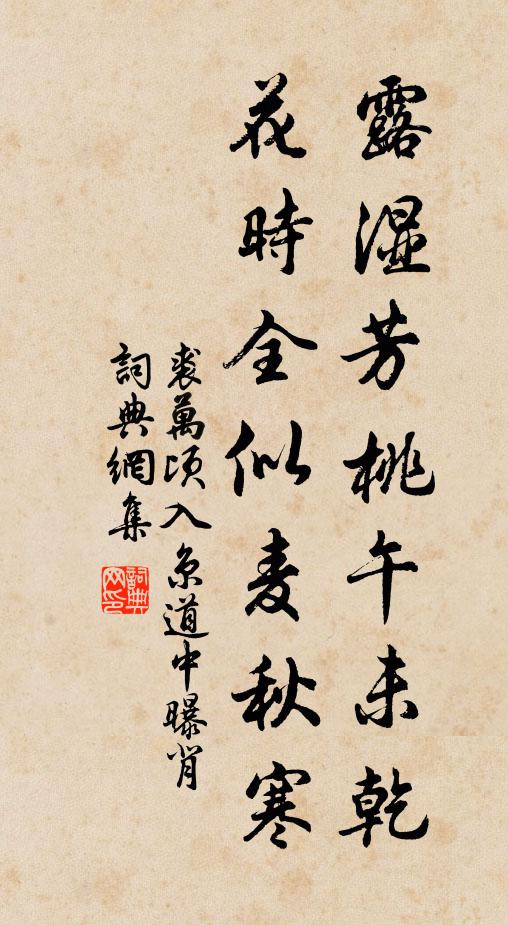 露湿芳桃午未乾
花時全似麦秋寒
裘萬頃入京道中曝背
詞典網集
詞典網印